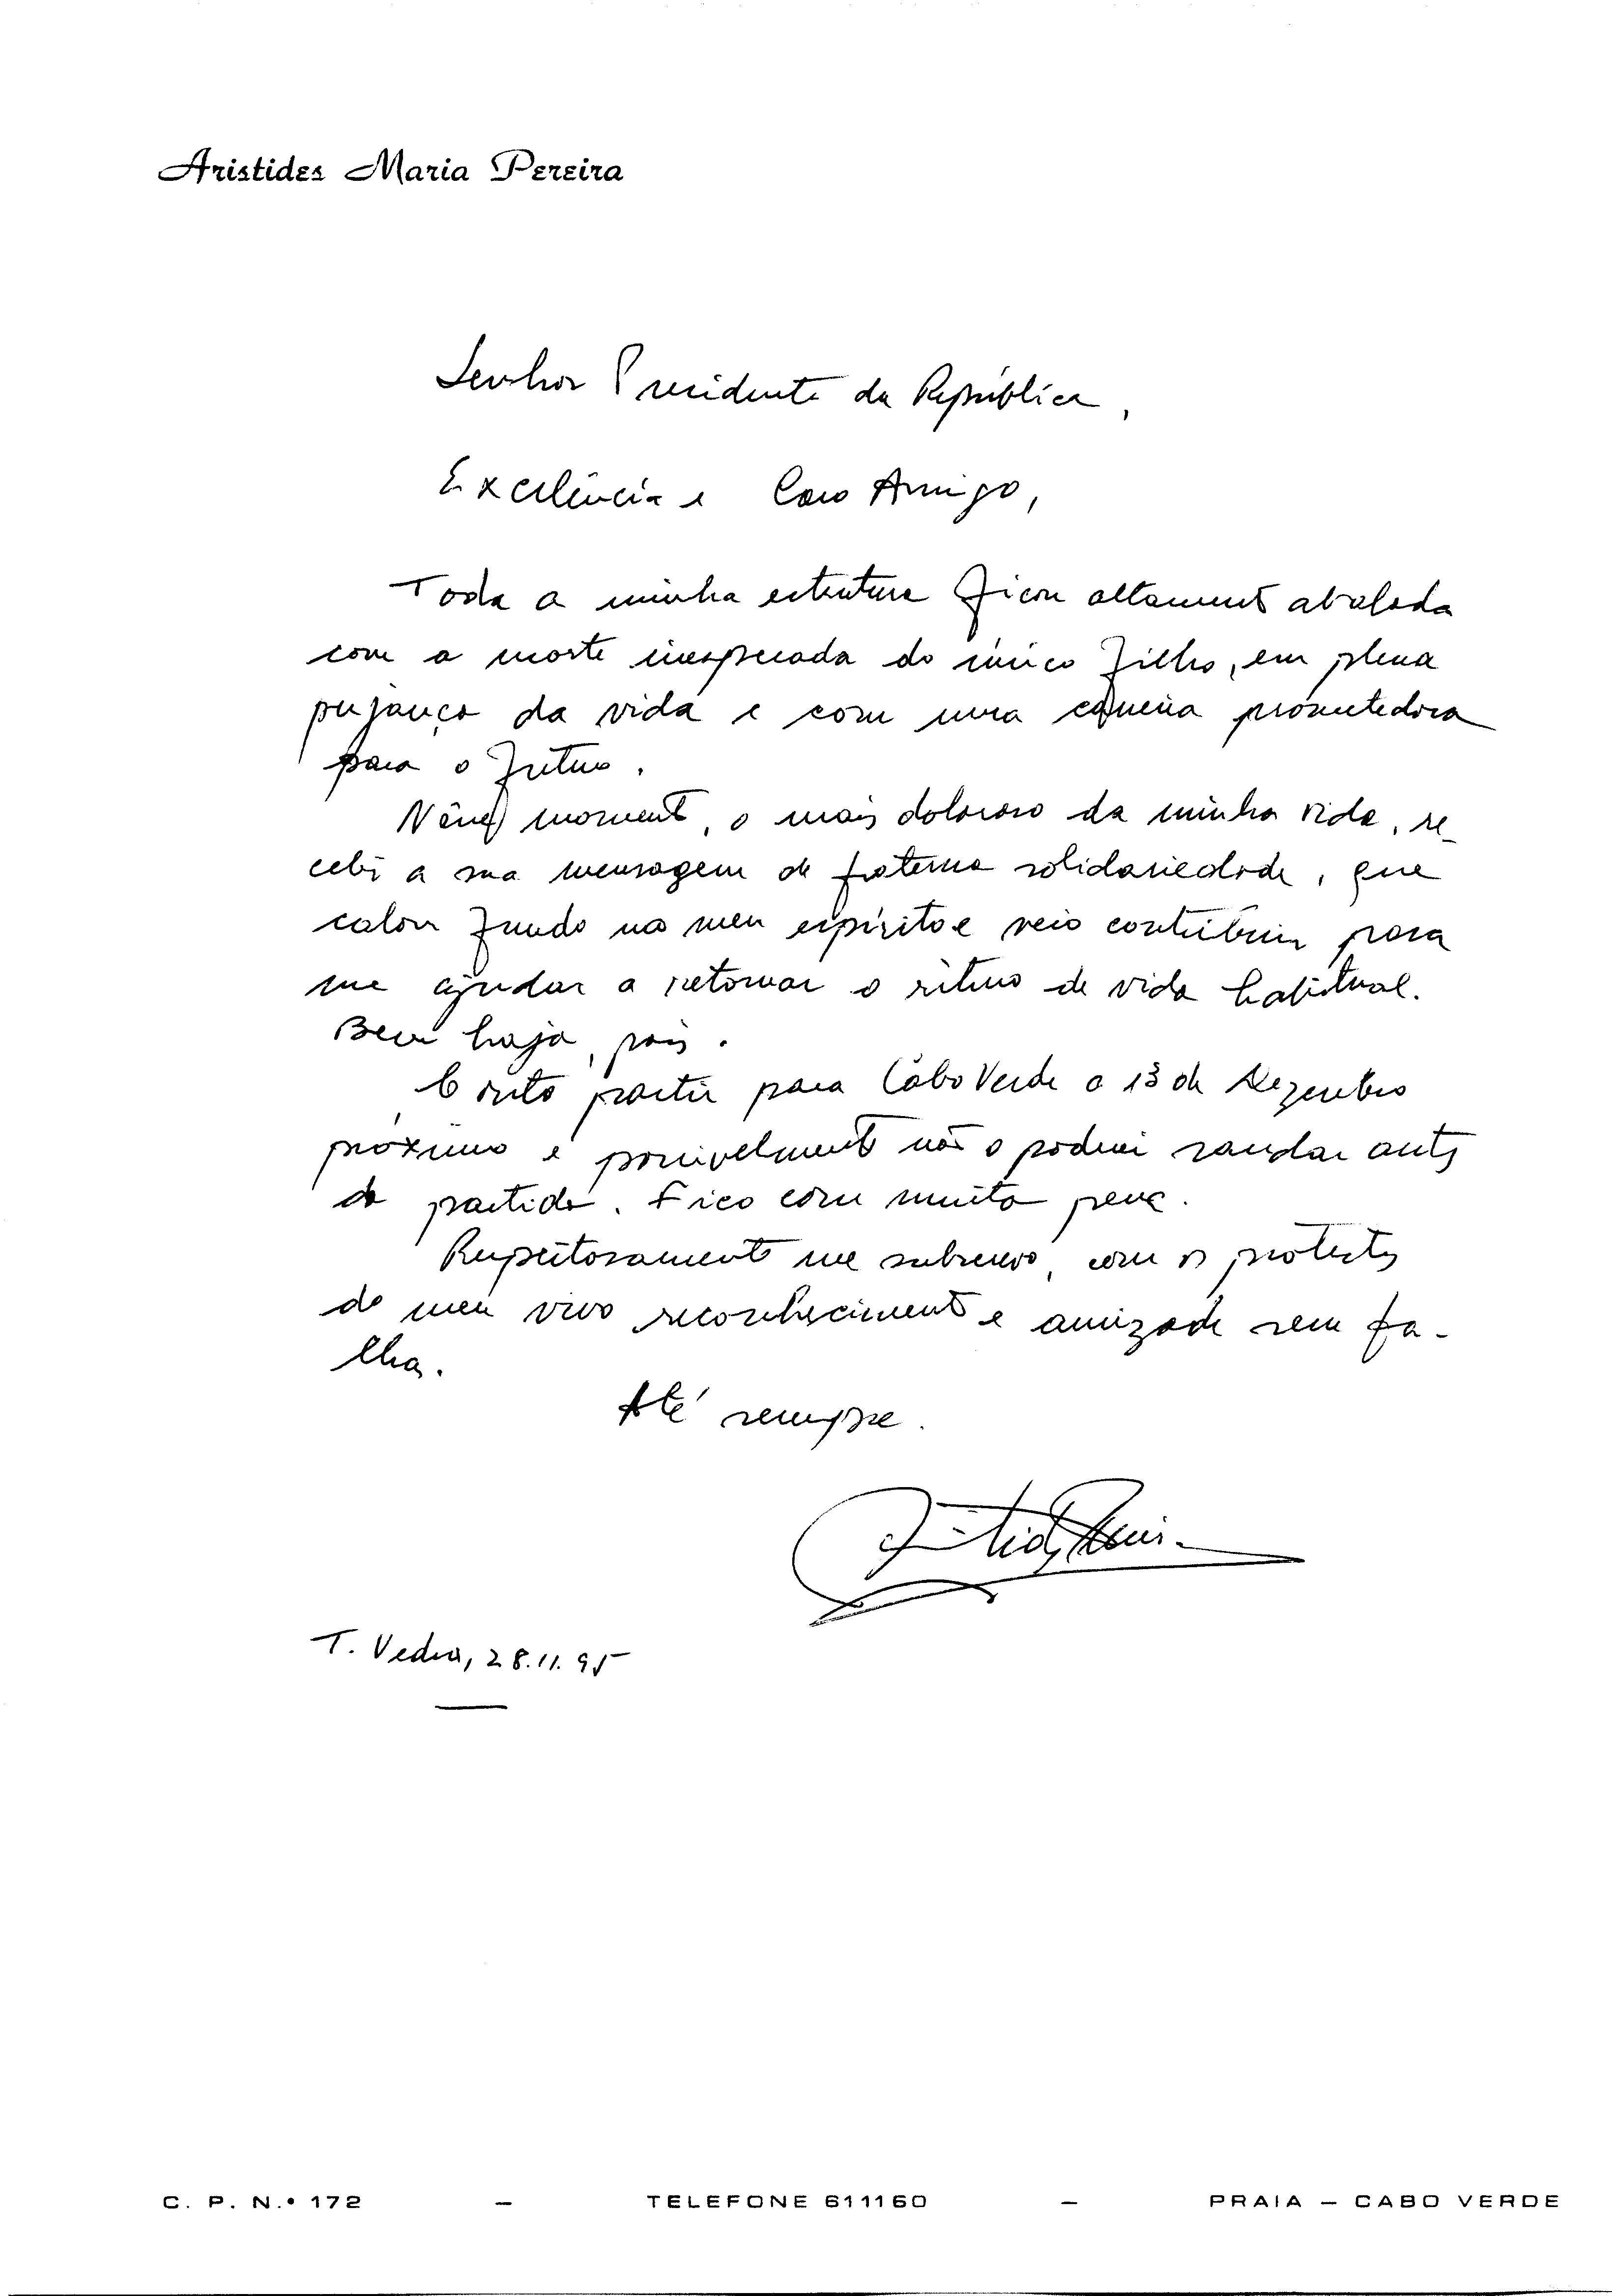 Aristides Maria Pereira
Senhor Presidente da República,
Excelência e Caro Amigo,
Toda a minha estrutura ficou altamente abalada
com a morte inesperada do único filho, em plena
pujança da vida e com uma carreira prometedora
para o futuro.
Nêsse momento, o mais doloroso da minha vida, re-
cebi a sua mensagem de fraterna solidariedade, que
calou fundo no meu espírito e veio contribuir para
me ajudar a retomar o ritmo de vida habitual.
Bem haja, pois.
Conto partir para Cabo Verde a 13 de Dezembro
próximo e possivelmente não o poderei saudar antes
da partida. Fico com muita pena.
Respeitosamente me subscrevo, com os protestos
do meu vivo reconhecimento e amizade sem fa-
lha.
Até sempre.
T. Vedras, 28.11.95
C. P. N.º 172 – TELEFONE 611160 – PRAIA – CABO VERDE